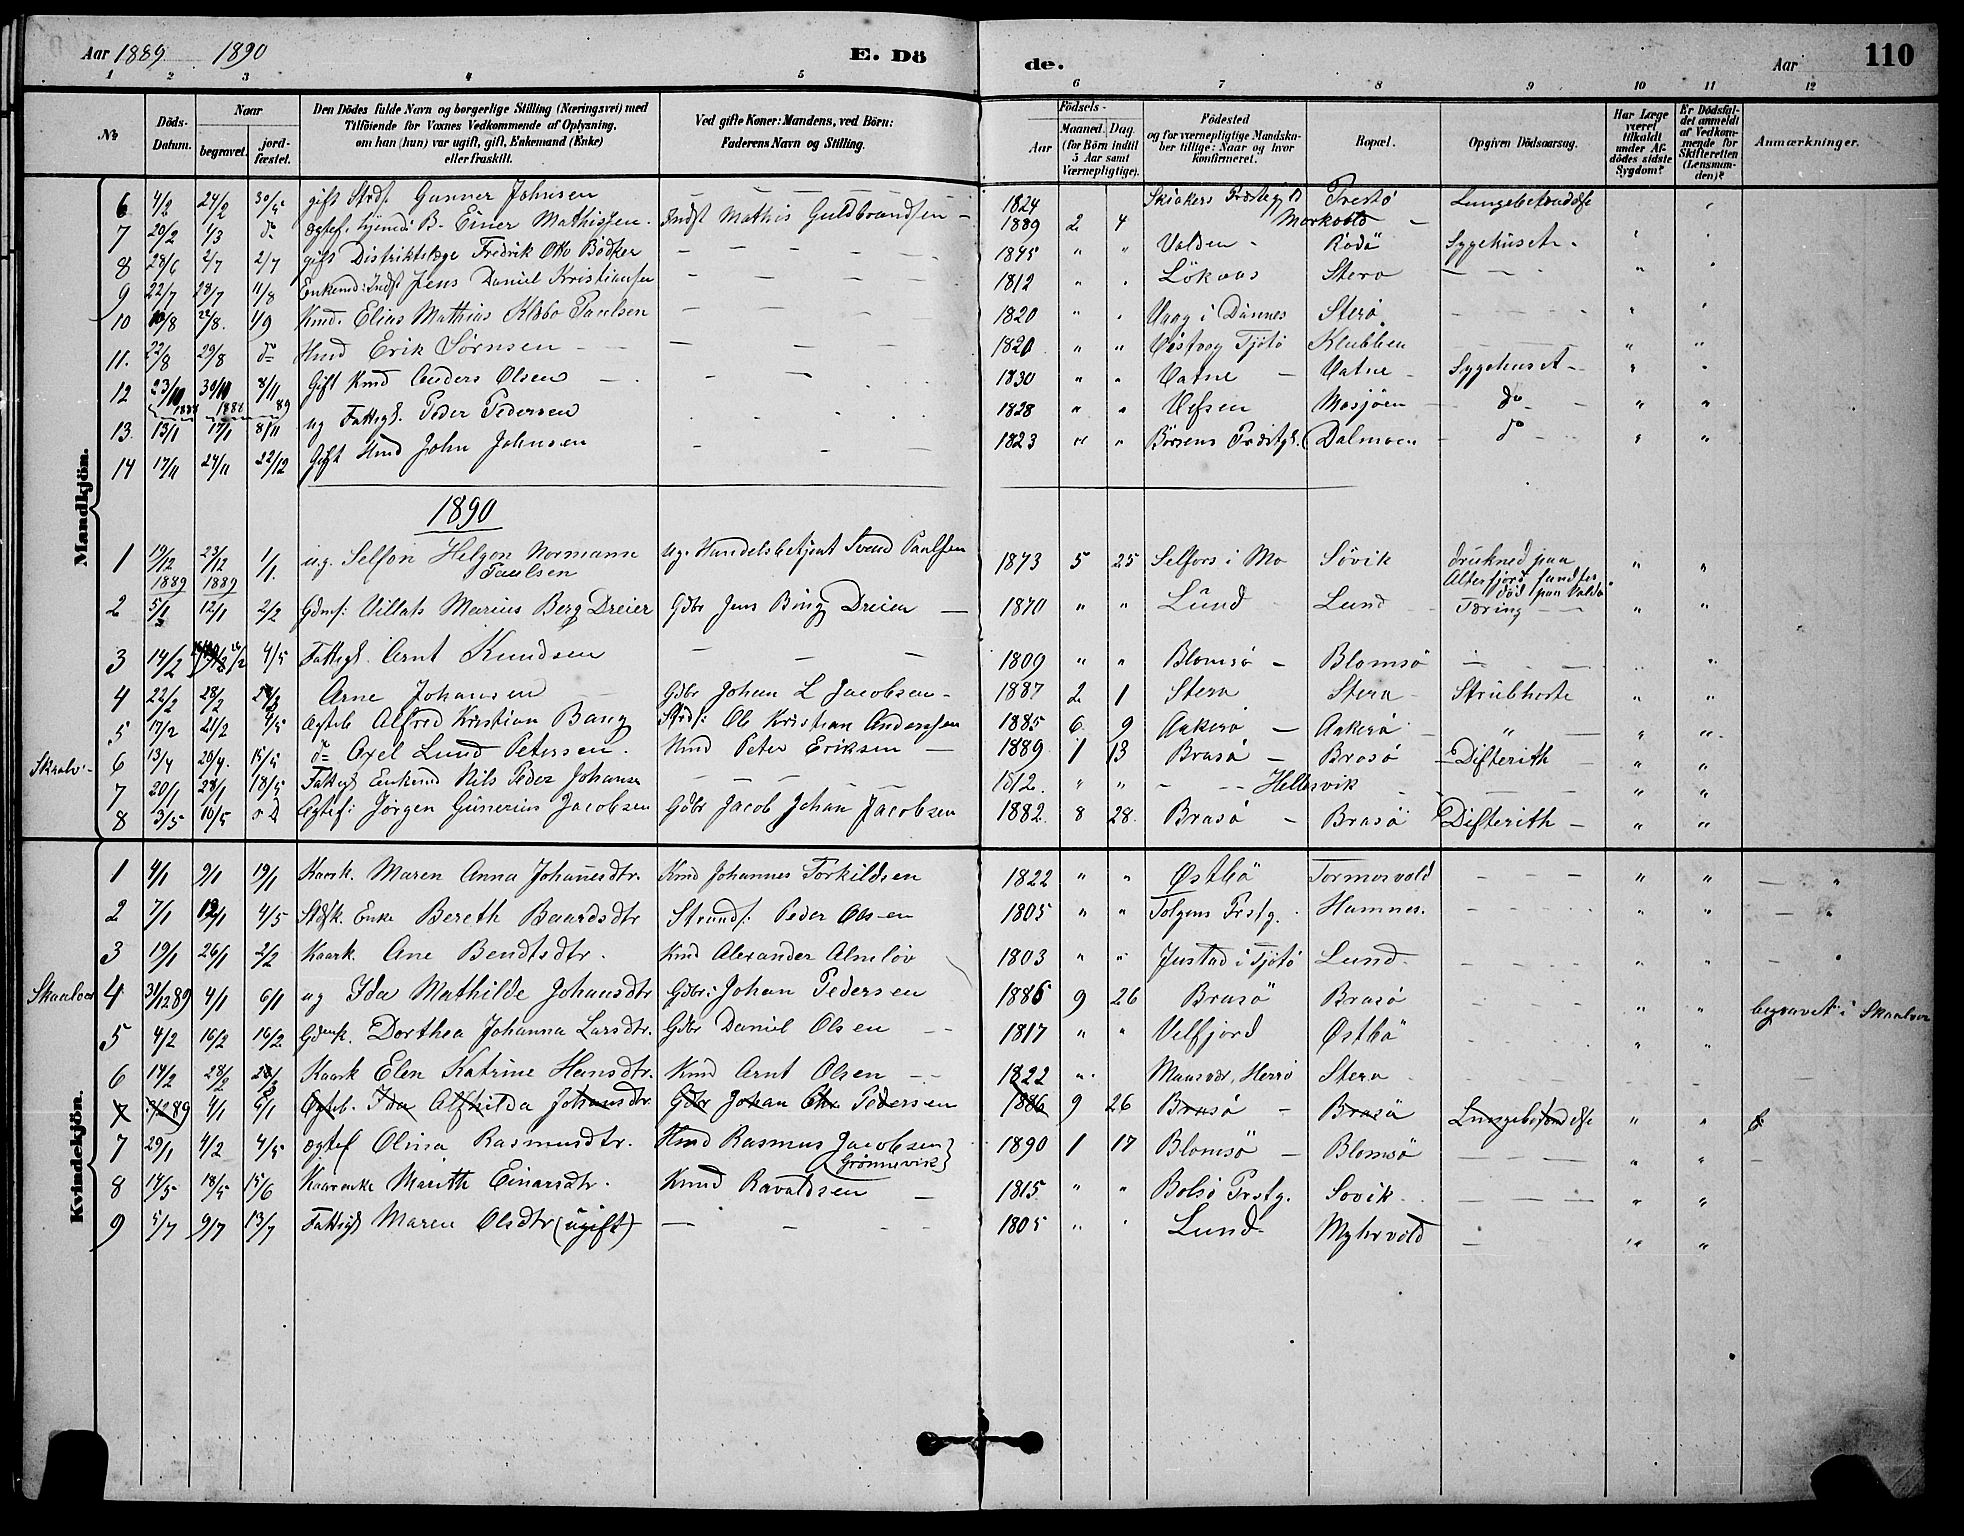 Aar 1889 1890 E. Dö de. Aar 110
1 2 3 4 5 6 7 8 9 10 11 12
No. Döds-Datum. Naar begravet. jord-fæstet. Den Dödes fulde Navn og borgerlige Stilling (Næringsvei) med Tilföiende for Voxnes Vedkommende af Oplysning, om han (hun) var ugift, gift, Enkemand (Enke) eller fraskilt. Ved gifte Koner: Mandens, ved Börn: Faderens Navn og Stilling. Födsels- Aar Maaned. Dag. (for Börn indtil 5 Aar samt Værnepligtige). Födested og for værnepligtige Mandskaber tillige: Naar og hvor konfirmeret. Bopæl. Opgiven Dödsaarsag. Har Læge været tilkaldt under Afdödes sidste Sygdom? Er Dödsfaldet anmeldt af Vedkommende for Skifteretten (Lensmanden)? Anmærkninger.
Mandkjön.
6 4/2 24/2 30/5 gift Strds. Gunner Johnsen — 1824 Skiakers Præstegjd Trestö Lungebetændelse
7 20/2 1/3 do Ægtef. hjemd: B. Einer Mathissen. Indst Mathis Guldbrandsen 1889 2 4 Markvold —
8 28/6 2/7 2/7 gift Distriktslæge Fredrik Otto Bödker — 1845 " " Valden Rödö Sygehuset
9 22/7 28/7 11/8 Enkemd: Indst Jens Daniel Kristiansen — 1812 " " Lökaas Stero —
10 10/8 22/8. 1/9 Kmd. Elias Mathias Klæbo Paulsen — 1820 " " Vaag i Dönnes Sterö —
11. 22/8 29/8 do Hmd Erik Sörnsen — 1820 " " Vistvog Tjötö Klubben —
12 23/10 30/10 8/11 Gift Kmd Anders Olsen — 1830 " " Vatne Vatne Sygehuset
1888 1888 89
13. 13/1 17/1 8/11 ug Fattigl. Peder Pedersen 1828 " " Vefsen Mosjöen do
14 17/11 24/11 22/12 Gift Hmd John Johnsen 1823 " " Börsens Præstgj. Dalmoen do
1890
1 19/12 1889 23/12 1889 1/1. ug. Selfon Helgon Normann Paulsen ug. Handelsbetjent Svend Paulsen 1873 5 25 Selfors i Mo Sövik drukned paa Altenfjord funden död paa
2 5/1 12/1 2/2 Gdms: Villats Marius Berg Dreier Gdbr Jens Bing Dreier — 1870 " " Lund Lund Tæring —
3 14/2 4/5 Fattigl. Arnt Knudsen — 1809 " " Blomsö — Blomsö —
4 22/2 28/2 Arne Johansen Gdbr Johan L Jacobsen 1887 2 1 Stera Stera Strubhoste
5 17/2 21/2 4/5 Ægteb Alfred Kristian Bang Strds: Ole Kristian Anderssen 1885 6 9 Aakerö — Aakerö "
Skaalv. 6 13/4 20/4. 15/5 do Axel Lund Petersen. Kmd Peter Eriksen — 1889 1 13 Brasö — Brasö Difterith
7 20/1 28/1 18/5 Fattigl Enkemd Nils Peder Johansen — 1812. " " — Hellesvik —
8 3/5 10/5 Ægtef: Jörgen Günerius Jacobsen Gdbr Jacob Johan Jacobsen 1882 8 28. Brasö — Brasö Difterith —
Kvindekjön.
1 4/1 9/1 19/1 Kaark. Maren Anna Johanesdtr. Kmd Johannes Torkildsen 1822 " " Östbö Tormosvold — "
2 7/1 12/1 4/5 Stdsk. Enke Bereth Baardsdtr Strands: Peder Olsen 1805 " " Tolgens Prstg. Hamnes. — "
3 19/1 26/1 2/2 Kaark. Ane Bendtsdtr. Kmd Alexander Almlöv 1803 " " Justad i Tjötö Lund
Skaalvær 4 31/12 89 4/1 6/1 ug Ida Mathilde Johansdtr Gdbr: Johan Pedersen 1886 9 26 Brasö Brasö begravet i Skaalvær
5 4/2 16/2 16/2 Gdenk. Dorthea Johanna Larsdtr. Gdbr Daniel Olsen — 1817 " " Velfjord Östbö
6 14/2 28/2 Kaark Elen Katrine Hansdtr. Kmd Arnt Olsen — 1822 " Maasvær, Herrö Stera
7 31/12 89 4/1 6/1 Ægteb. Ida Alfhilda Johansdtr Gdbr Johan Chr. Pedersen 1886 9 26 Brasö — Brasö Lungebetændelse
7 29/1 4/2 4/5 Ægtef Olina Rasmusdtr. Kmd Rasmus Jacobsen (Grönnsvik) 1890 1 17 Blomsö — Blomsö —
8 14/5 18/5 15/6 Kaarenke Marith Einarsdtr. Knud Ravaldsen — 1815 " " Bolsö Prstg. Sovik —
9 5/7 9/7 13/7 Fattigl Maren Olsdtr (ugift) — 1805 " " Lund Myhrvold —